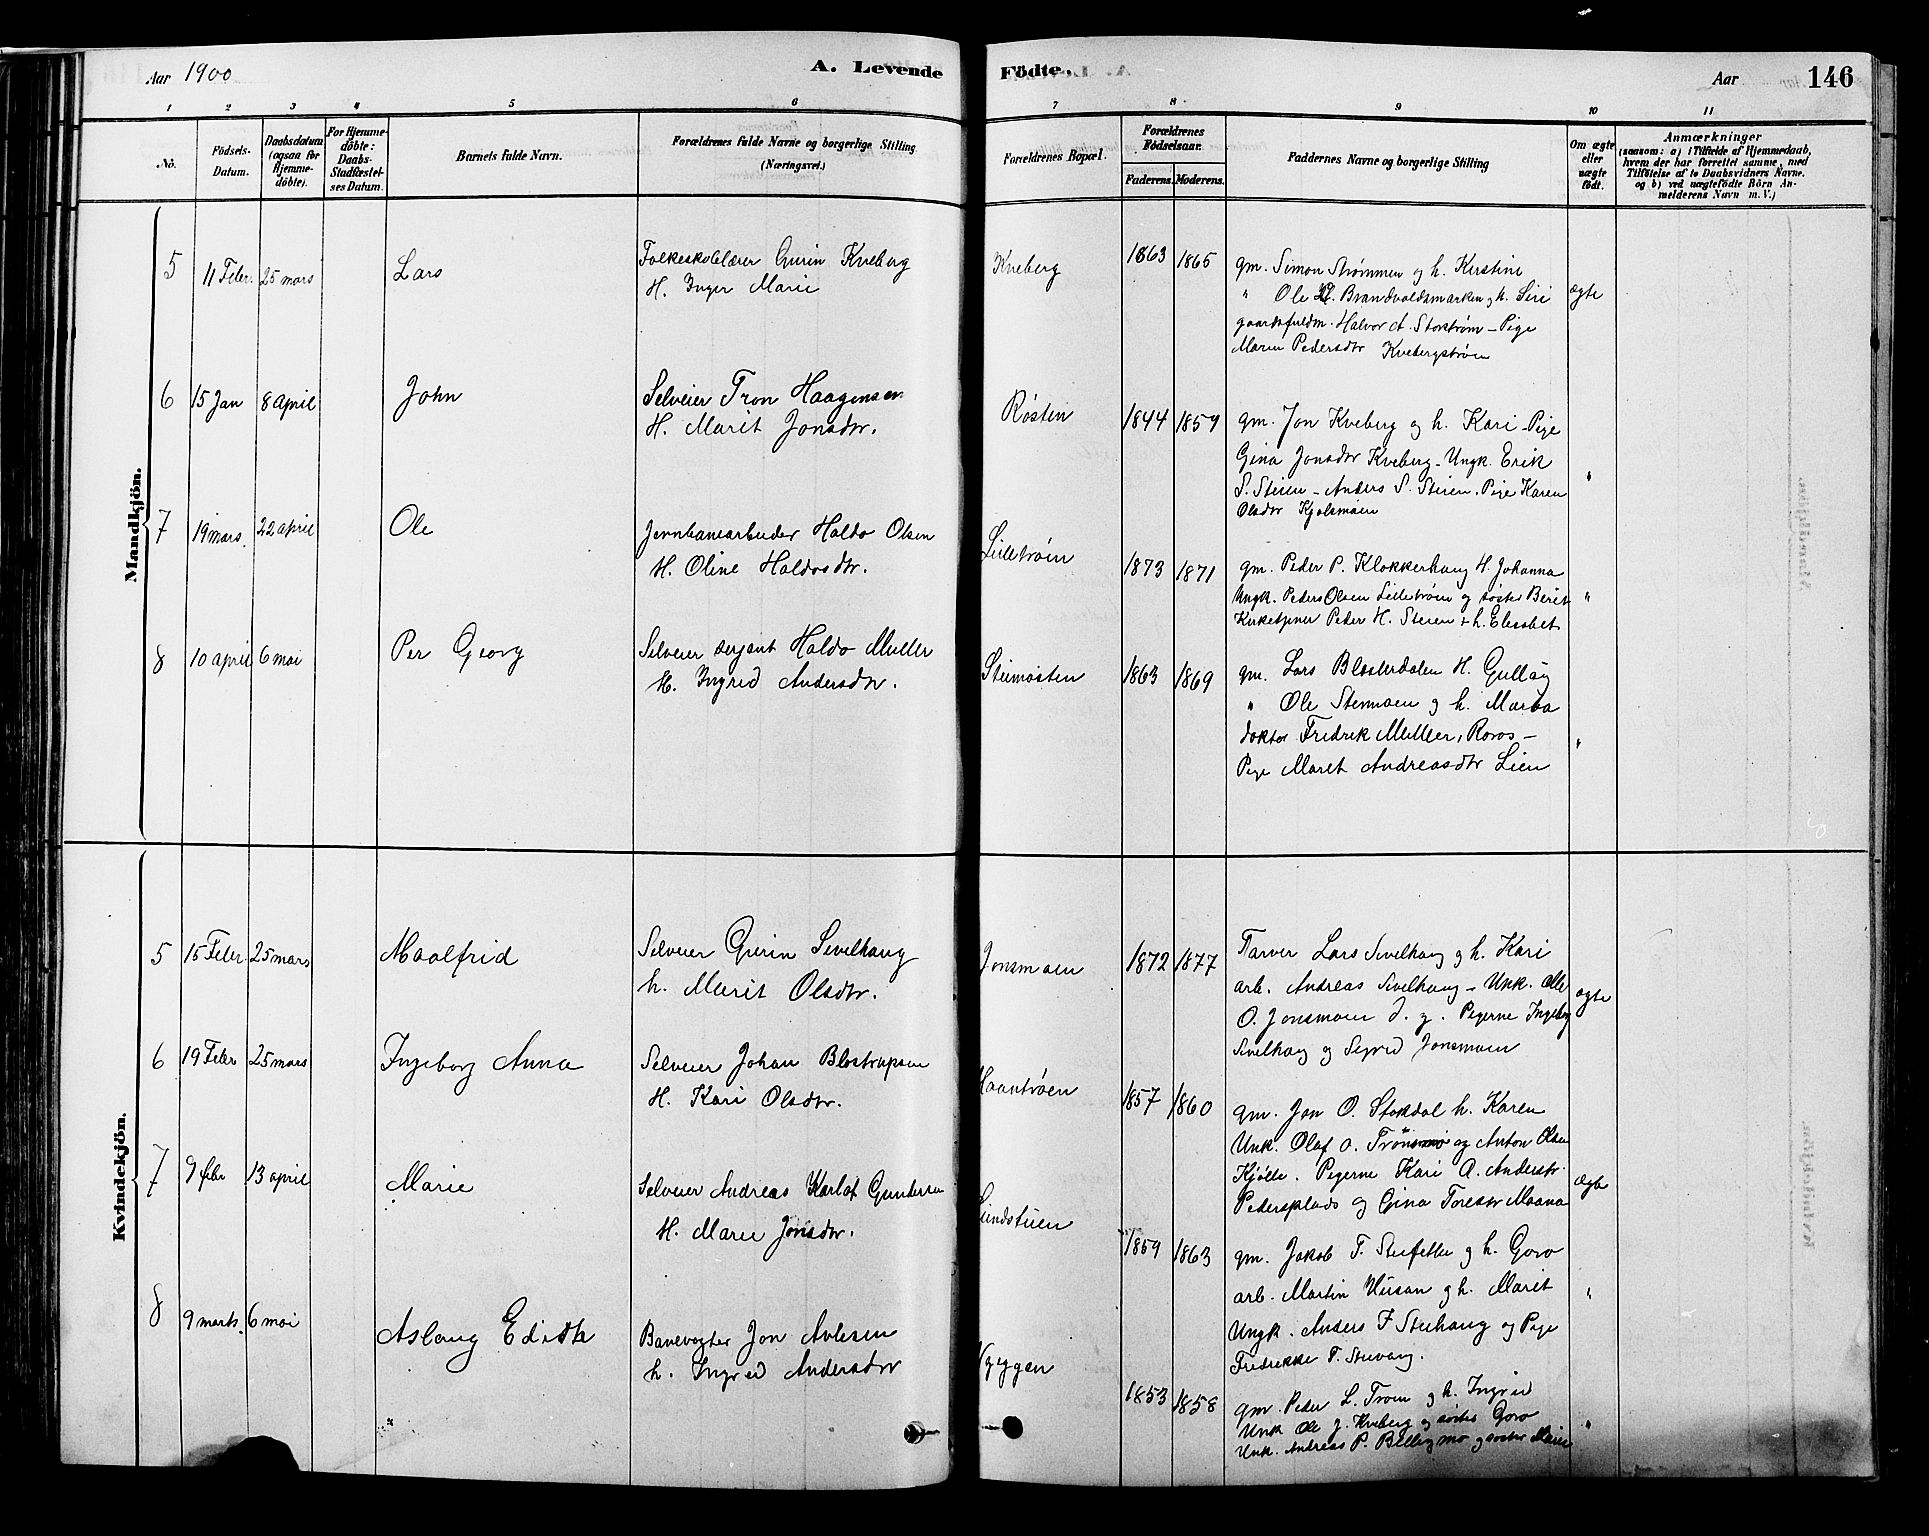 Aar 1900
A. Levende
Födte,
Aar
146
1 2 3 4 5 6 7 8 9 10 11
No.
Födsels-
Datum.
Daabsdatum
(ogsaa for
Hjemme-
döbte).
For Hjemme-
döbte:
Daabs-
Stadfæstel-
ses Datum.
Barnets fulde Navn.
Forældrenes fulde Navne og borgerlige Stilling
(Næringsvei.)
Forældrenes Bopæl.
Forældrenes
Födselsaar.
Faderens. Moderens.
Faddernes Navne og borgerlige Stilling
Om ægte
eller
uægte
födt.
Anmærkninger
(saasom: a) i Tilfælde af Hjemmedaab,
hvem der har forrettet samme, med
Tilföielse af to Daabsvidners Navne.
og b) ved uægtefödte Börn An-
melderens Navn m. V.)
Mandkjön.
5 11 Febr. 25 mars Lars
Folkeskolelærer Gurin Kveberg
H. Inger Marie
Kveberg 1863 1865
gm. Simon Strømmen og h. Kirstine
" Ole Brandvoldsmarken g h. Siri
gaardsfuldm. Halvor A. Storstrøm - Pige
Maren Pedersdtr Kvebergstrøen
ægte
6 15 Jan 8 april John
Selveier Tron Haagensen
H. Marit Jonsdtr.
Røsten 1844 1859
gm. Jon Kveberg og h. Kari - Pige
Gina Jonsdtr Kveberg - Ungk. Erik
S. Steien - Anders S. Steien. Pige Karen
Olsdtr Kjolsmoen
"
7 19 mars. 22 april Ole
Jernbanearbeider Haldo Olsen
H. Oline Haldosdtr.
Lilletrøen 1873 1871
gm. Peder P. Klokkerhaug H. Johanna
Ungk. Peder Olsen Lilletrøen og søster Berit
Kirketjner Peder H. Steien + h. Elisabet
"
8 10 april 6 mai Per Georg
Selveier sergant Haldo Müller
H. Ingrid Andersdtr.
Steimosten 1863 1869
gm. Lars Blesterdalen H. Gullaug
" Ole Stenmoen g h. Marta
doktor Fredrik Müller, Røros -
Pige Marit Andreasdtr Lien
"
Kvindekjön.
5 15 Febr. 25 mars Maalfrid
Selveier Gurin Sivilhaug
h. Marit Olsdtr.
Jonsmoen 1872 1877
Farver Lars Sivilhaug g h. Kari
arb. Andreas Sivilhaug - Unk. Ole
O. Jonsmoen d. y. Pigerne Ingeborg
Sivilhaug og Sigrid Jonsmoen
ægte
6 19 Febr 25 mars Ingeborg Anna
Selveier Johan Blostrupsen
H. Kari Olsdtr.
Maantrøen 1857 1860
gm. Jon O. Stordal h. Karen
Unk. Olaf O. Trønsmo og Anton Olsen
Kjølle. Pigerne Kari A. Andersdtr
Pedersplads og Gina Toresdtr Maana
ægte
7 9 febr 13 april Marie
Selveier Andreas Karlot Gundersen
H. Marie Jonsdtr.
Lundstuen 1859 1863
gm. Jakob T. Steifetten g h. Goro
arb. Martin Nusan g h. Marit
Ungk. Anders T Steihaug og Pige
Fredrikke T. Steivang.
"
8 9 marts. 6 mai Aslaug Edith
Banevogter Jon Avlesen
h. Ingrid Andersdtr
1853 1858
gm. Peder L. Troen g h. Ingrid
Unk Ole J. Kveberg og søster Goro
Unk. Andreas P. Bellingmo og søster Marie
"